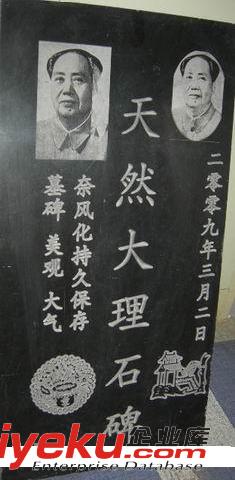 二零零九年三月二日
天然大理石碑
奈风化持久保存
墓碑 美观 大气
iyeku.com
企业库
Enterprise Database